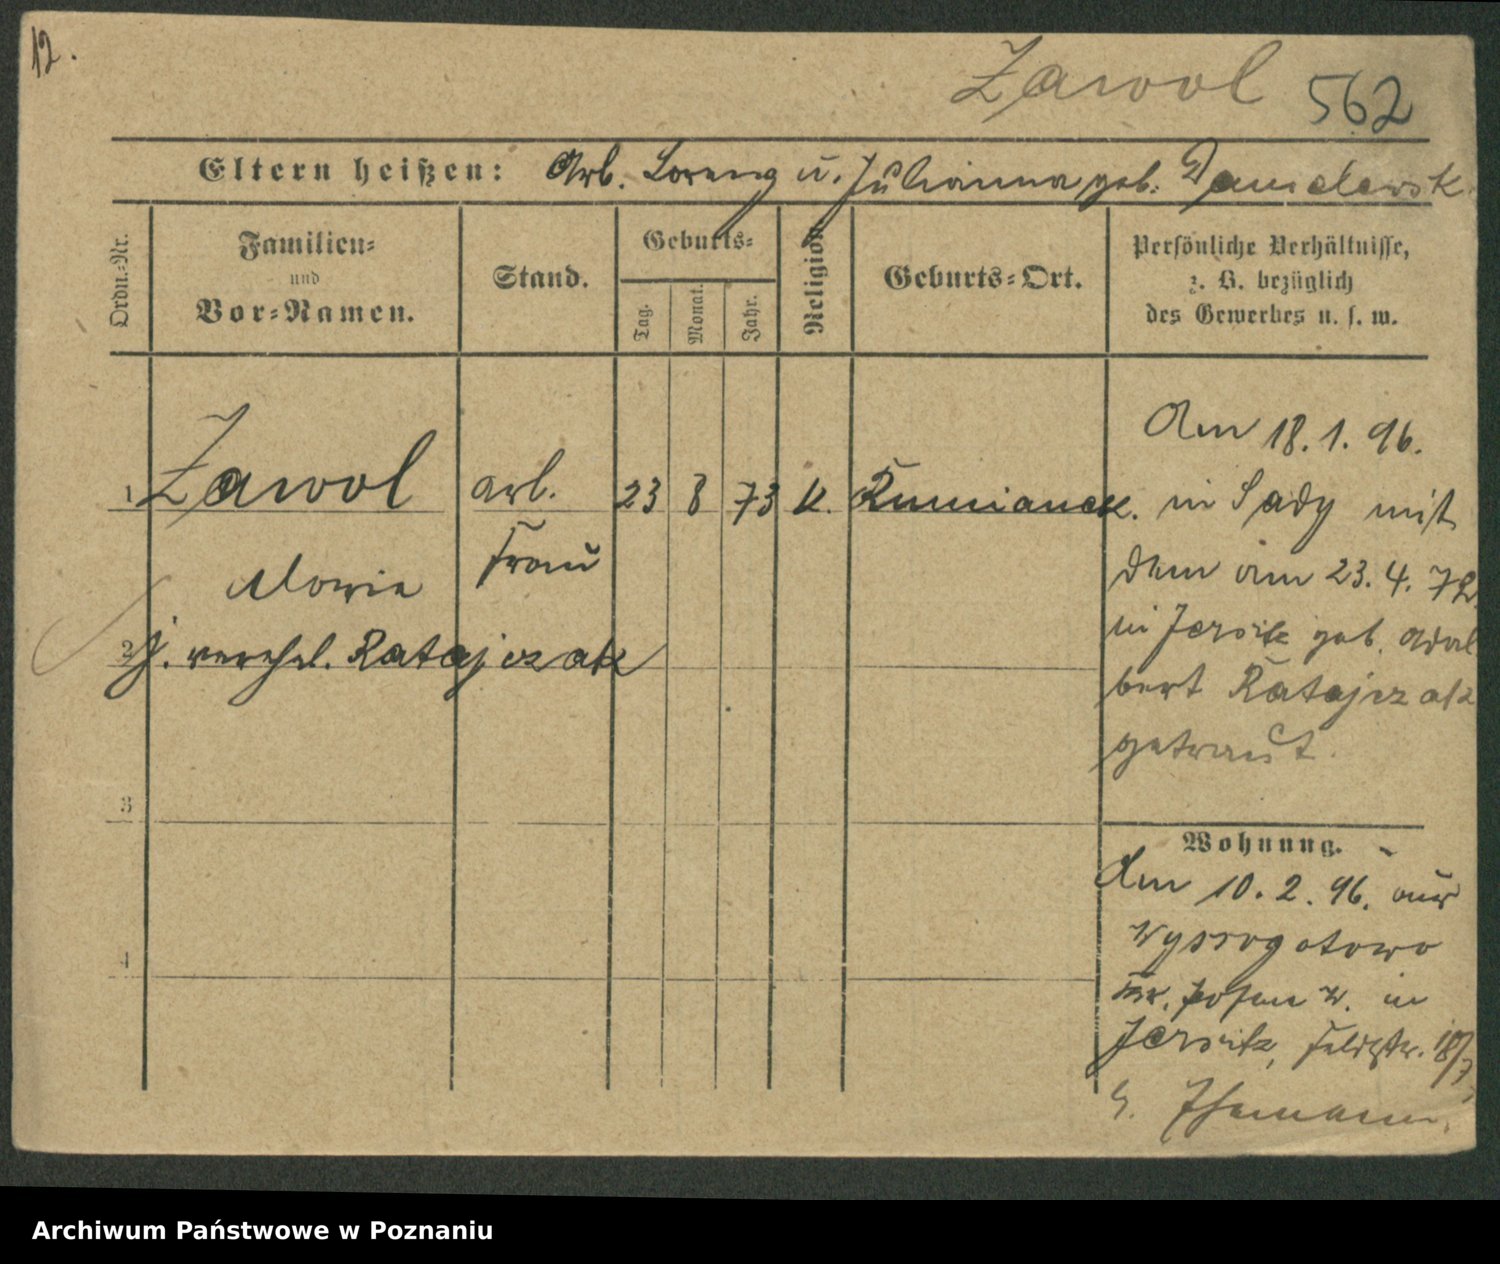 12.
Zawol 562
Eltern heißen: Arb. Lorenz u. Julianna geb. Danielewsk
Ordn.-Nr.
Familien-
und
Vor-Namen.
Stand.
Geburts-
Tag.
Monat.
Jahr.
Religion
Geburts-Ort.
Persönliche Verhältnisse,
z. B. bezüglich
des Gewerbes u. s. w.
1 Zawol arb. 23 8 73 k. Rumianek.
Frau
Maria
2 j. verehel. Ratajczak
3
4
Am 18.1.96.
in Sady mit
dem am 23.4.72
in Jersitz geb. Adal
bert Ratajczak
getraut.
Wohnung.
Am 10.2.96. aus
Wysogotowo
Kr. Posen W. in
Jersitz, Feldstr. 18/7,
Archiwum Państwowe w Poznaniu